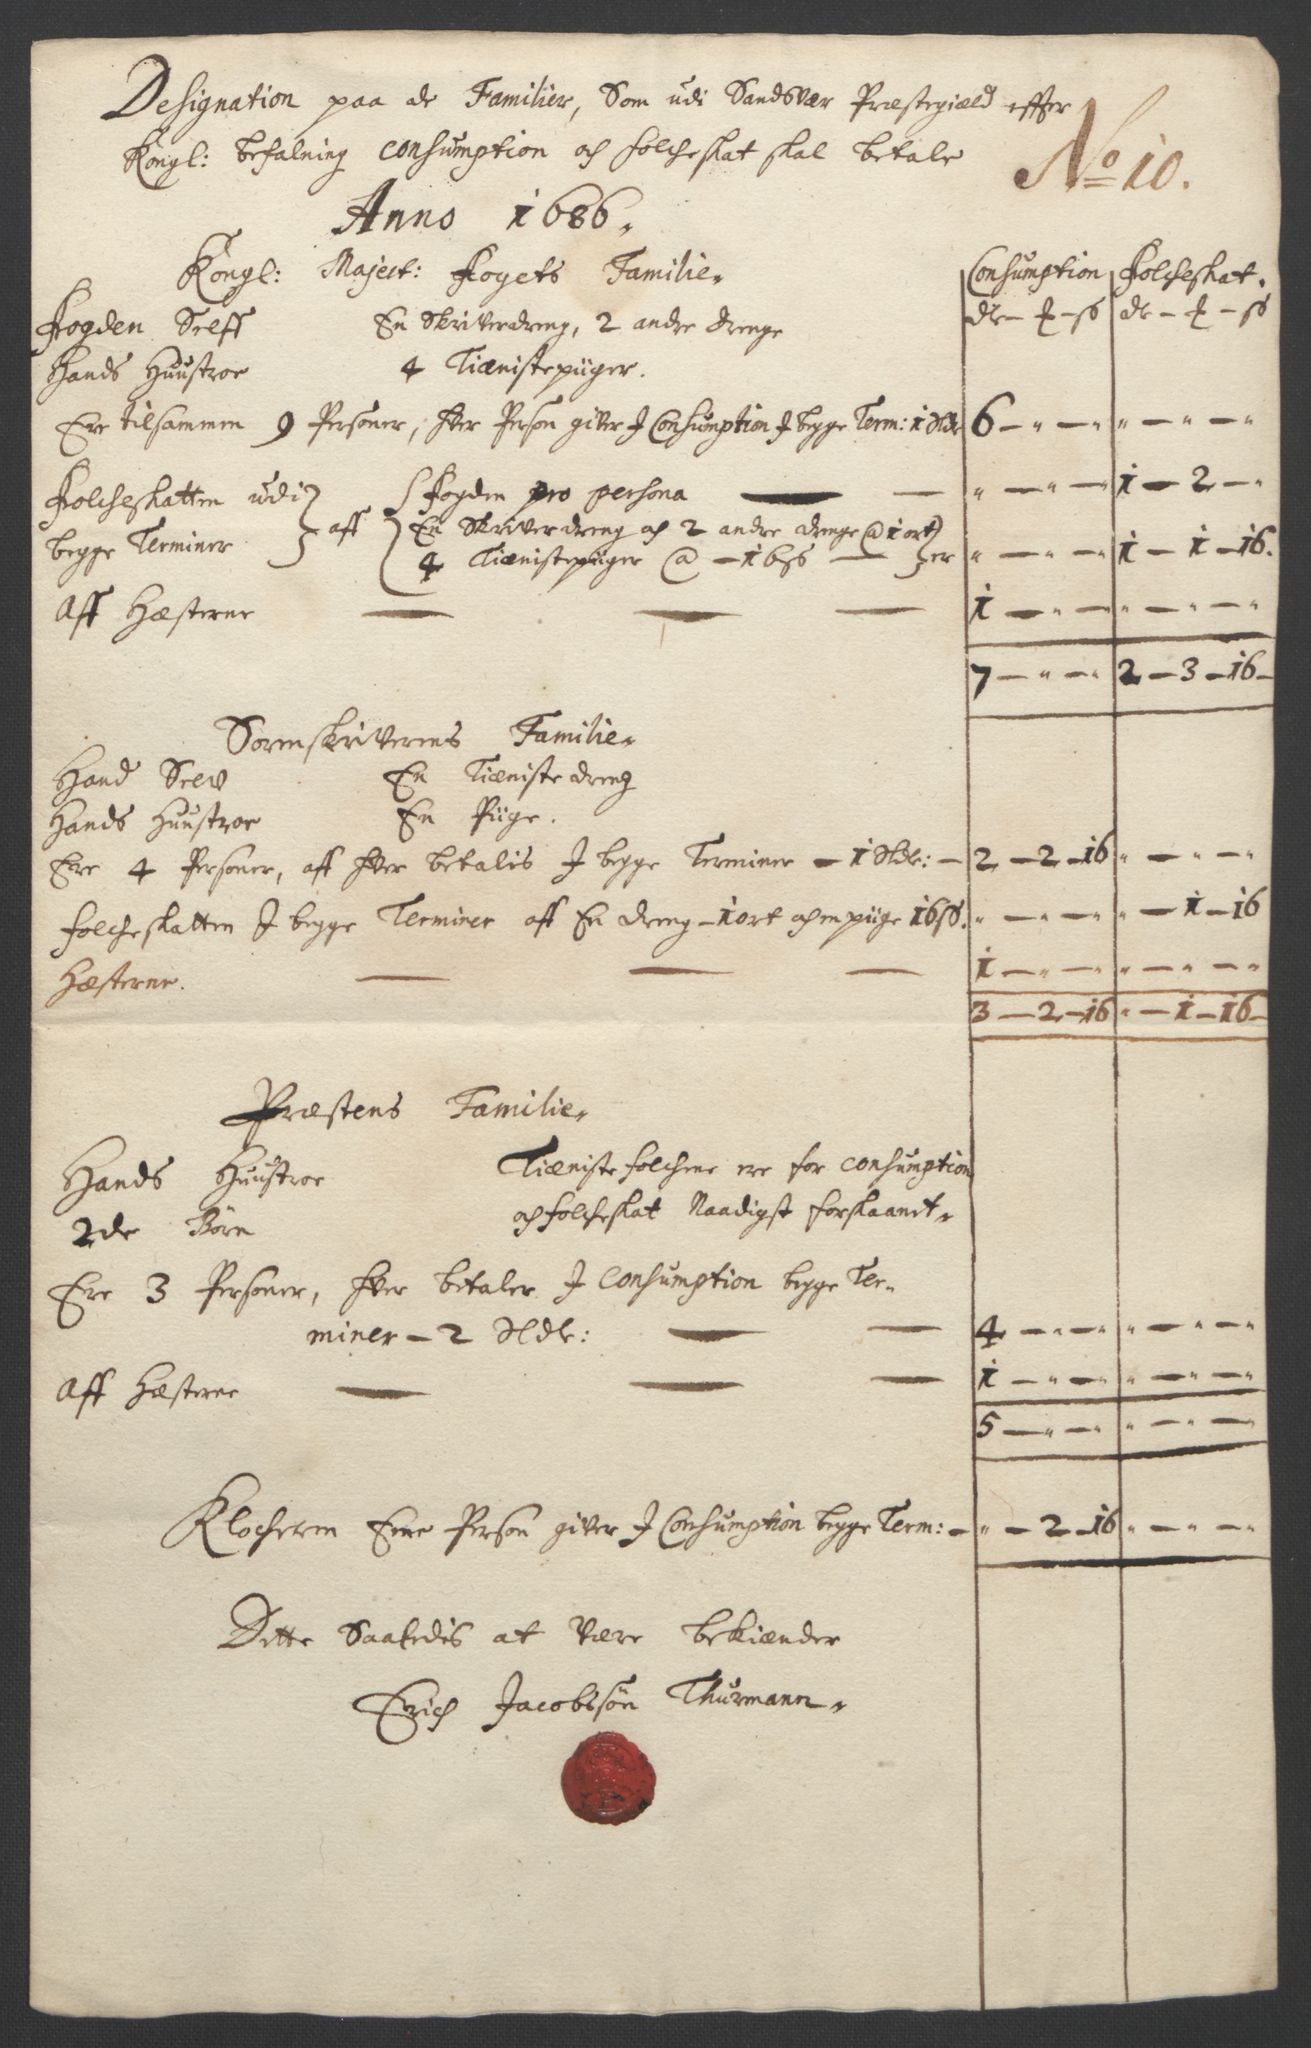 Designation paa de Familier, Som udi Sandsvær Præstegiæld effter
Kongl: befalning Consumption och folcheskat skal betale
No 10.
Anno 1686.
Kongl: Majest: Fogets Familie.
Consumption Folcheskat.
dr - ȶ - sß dr - ȶ - sß
Fogden Selff En Skriverdreng, 2 andre drenge
Hands Huustroe 4 Tiænistepiiger.
Ere tilsammen 9 Personer, hver Person giver J Consumption J begge Term: 1 Sldr 6 - " - " " - " - "
Folcheskatten udi } aff { Fogden pro persona - " - " - " 1 - 2 - "
begge Terminer En Skriverdreng och 2 andre drenge @ 1 ort
4 Tiænistepiiger @ - 16 sß - er " - " - " 1 - 1 - 16.
Aff Hæsterne 1 - " - " " - " - "
7 - " - " 2 - 3 - 16 -
Sorenskriverens Familie.
Hand Selv En Tiæniste dreng
Hands Huustroe En Piige.
Ere 4 Personer, aff hver betalis J begge Terminer - 1 Sldr: - 2 - 2 - 16 " - " - "
folcheskatten J begge Terminer aff En dreng - 1 ort och en piige 16 sß. " - " - " " - 1 - 16
Hæsterne. 1 - " - " " - " - "
3 - 2 - 16 " - 1 - 16 -
Præstens Familie.
Hands Huustroe Tiæniste folchene ere for Consumption
2de Börn och folcheskat Naadigst forskaanet.
Ere 3 Personer, hver betaler J Consumption begge Ter-
miner - 2 Sldr: 4 - " - " " - " - "
Aff Hæsterne 1 - " - " " - " - "
5 - " - " " - " - "
Klocheren Eene Person giver J Consumption begge Term: - " - 2 - 16 " - " - "
Dette Saaledis at være bekiænder
Erich Jacobssön Thurmann.